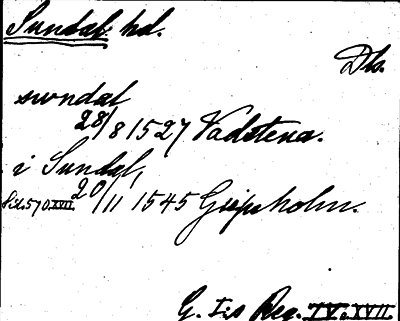 Sundals hd.
Dls.
swndal
28/8 1527 Vadstena.
i Sundal,
20/11 1545 Gripsholm.
G. I:s Reg. IV. XVII.